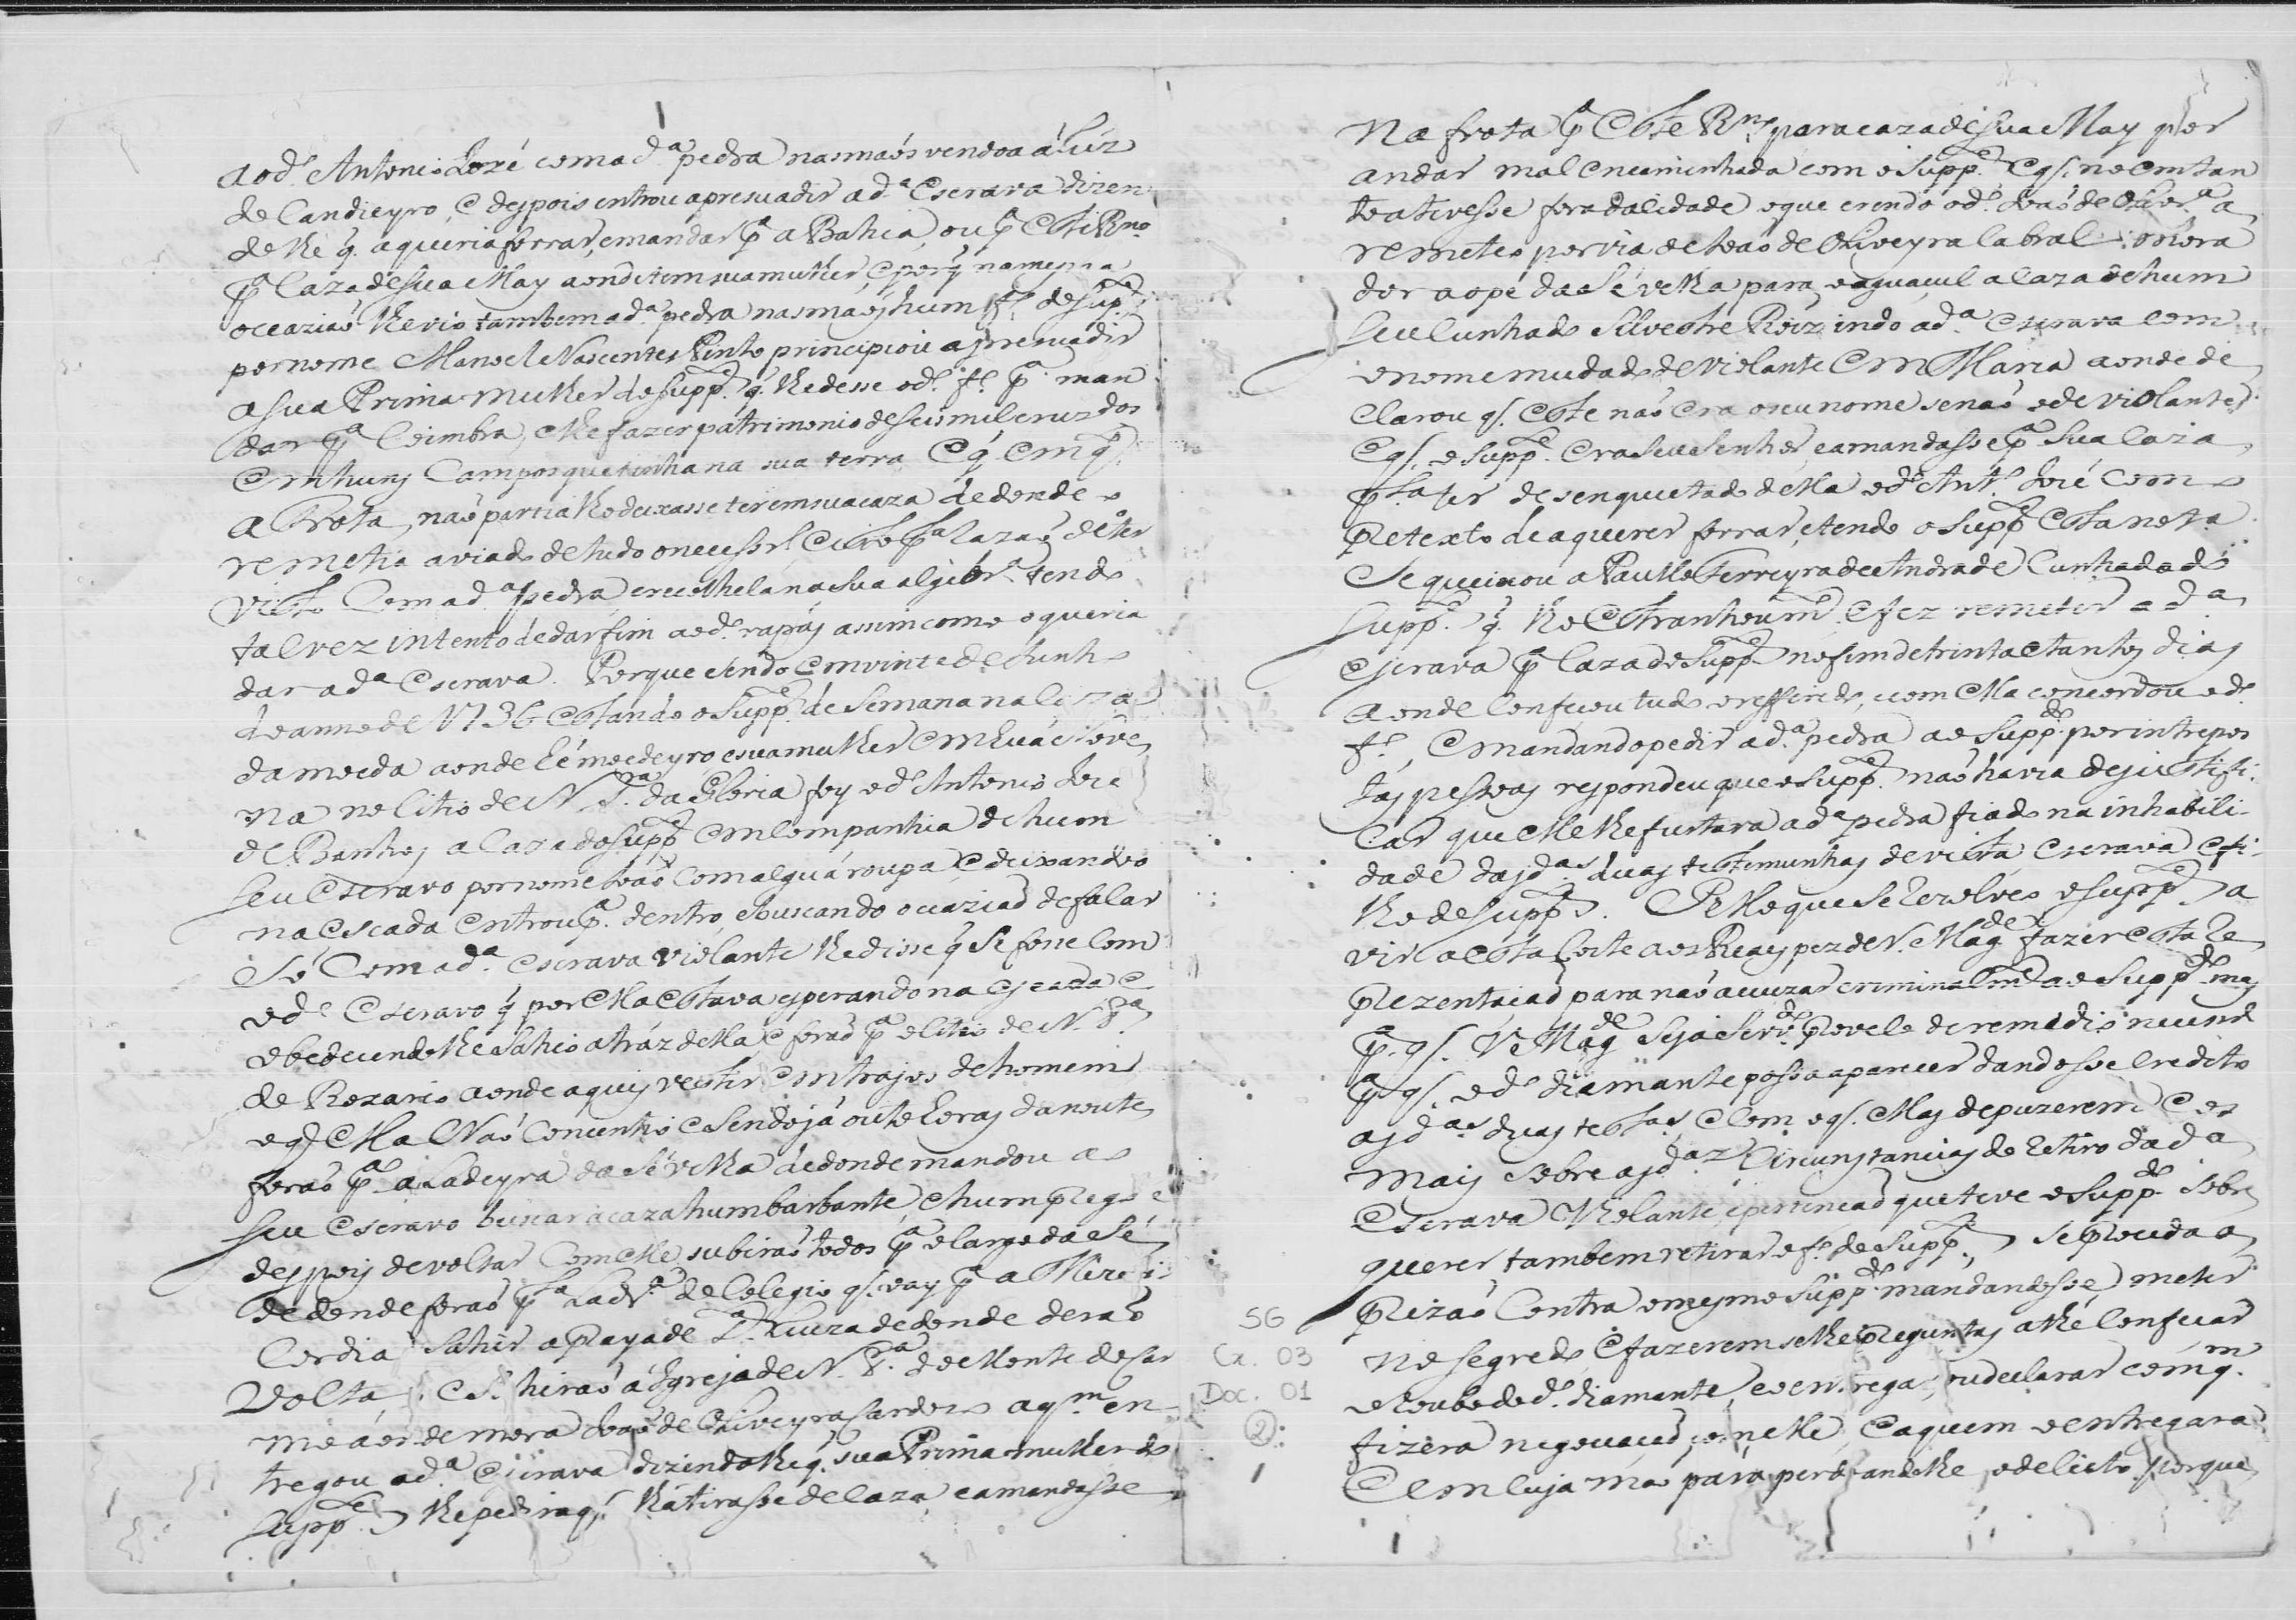 aod.º Antonio Jozé com a d.ª pedra nas maós vendoa á luz
de Candieyro, e despois entrou apresuadir ad.ª Escrava dizen
dolhe q̃. aqueria forrar, emandar p.ª a Bahia, ou p.ª Este R.no
p.ª Caza de Sua May aondetem sua mulher, e porq̃ namesma
occaziaó lhe vio tambem ad.ª pedra nas maós hum f.º do Sup.e
por nome Manoel Nascentes Pinto principiou apresuadir
aSua Prima mulher do Supp.e q̃. lhe desse od.º f.º p.ª man
dar p.ª Coimbra, elhe fazer patrimonio de Seis mil cruzdos
Em huns Campos que tinha na sua terra Eq̃. Emq.to
a Frota, naó partia lho deixasse ter em sua caza de donde o
remetia aviado de tudo o necessr.º Eisto p.la razaó de o ter
visto Com ad.ª pedra erecolhela na Sua algibr.ª tendo
talvez intento de dar fim aod.º rapás assim como o queria
dar ad.ª Escrava. Porque sendo Em vinte de Junho
do anno de 1736 estando o Supp.e de Semana na Caza
da moeda aonde hé moedeyro e sua mulher Em huá Nove
na no Citio de N. Sr.ª da Gloria foy od.º Antonio Joze
de Banhos a Caza do Supp.e Em Companhia de hum
Seu Escravo por nome Joaó Com alguá roupa Edeixandoo
na Escada Entrou p.ª dentro, ebuscando occaziaó defalar
Só Com ad.ª Escrava violante lhe disse q̃ Se fosse Com
od.º Escravo q̃ por Ella Estava esperando na escada E
obedecendo lhe Sahio atráz della, e foraó p.ª o Citio de N. Sr.ª
do Rozario aonde aquis vestir Em trajos de homem
oq̃ Ella Naó Consentio E Sendo já oito horas da noute
foraó p.ª a Ladeyra da Sé velha de donde mandou ao
Seu Escravo buscar á caza hum barbante, e hum prego e
despois de voltar Com elle subiraó todos p.ª o largo da Sé
de donde foraó p.la Ladr.ª do Colegio q̃. vay p.ª a Mizeri
Cordia Sahir a Praya de S.ta Luzia de donde deraó
volta, e Se hiraó á Igreja de N. Sr.ª do Monte do Car
mo áonde mora Joaó de Oliveyra Cardozo aq.m en
tregou ad.ª Escrava dizendolhe q̃. sua Prima mulher do
Supp.e lhe pedira q̃. lha tirasse de Caza eamandasse
Na frota p.ª Este R.no para caza de Sua May por
andar mal Encaminhada com o Supp.e Eq̃. no Emtan
to ativesse fora da Cidade oque crendo od.º Joaó de Olivr.ª a
remeteo por via de Joaó de Oliveyra Cabral mora
dor ao pé da Sé velha para oaguaçul a Caza de hum
Seu Cunhado Silvestre Roiz indo ad.ª Escrava Com
o nome mudado de violante Em Maria aonde de
Clarou q̃. Este naó Era o seu nome senaó ode violante
Eq̃. o Supp.e Era Seu Senhor, eamandasse p.ª Sua Caza
p.la ter desenquietado della od.º Ant.º José Com o
Pretexto de a querer forrar, etendo o Supp.e Esta nota
Se queixou a Paullo Ferreyra de Andrade Cunhado do
Supp.e q̃. lho Estranhou m.to Efez remeter a d.ª
Escrava p.ª Caza do Supp.e no fim de trinta E tantos dias
aonde Confeçou tudo o reffirido, ecom Ella concordou od.º
f.º, E mandando pedir ad.ª pedra ao Supp.do por intrepos
tas pessoas respondeu que o Supp.e naó havia de justifi
Car que Elle lhe furtara ad.ª pedra fiado na inhabili
dade das d.as duas testemunhas de vista Escrava Efi
lho do Supp.e. Pello que Se Rezolveo o Supp.e a
vir a Esta Corte aos Reays pez de V. Mag.de fazer Esta Re
Prezentaçaó para naó accuzar criminalm.te ao Supp.do mas
p.ª q̃. V. Mag.de Seja Serv.do Provelo de remedio necessr.º
p.ª q̃. od.º diamante possa aparecer dandosse Credito
as d.as duas test.as E Com oq̃. Ellas depuzerem E os
mais Sobre as d.as Circunstancias do retiro da d.ª
Escrava Violante, epertençaó que teve o Supp.do Sobre
querer tambem retirar o f.º do Supp.e, Se Proceda a
Prizaó Contra o mesmo Supp.do mandandosse meter
No Segredo Efazeremselhe Preguntas athé Confeçar
o roubo do d.º diamante, eo entrega, ou declarar com q.m
fizera negoceaçaó com elle, Eaquem o entregara
Eem Cuja maó pára perdoandolhe o delicto porque
56
Cx. 03
Doc. 01
2